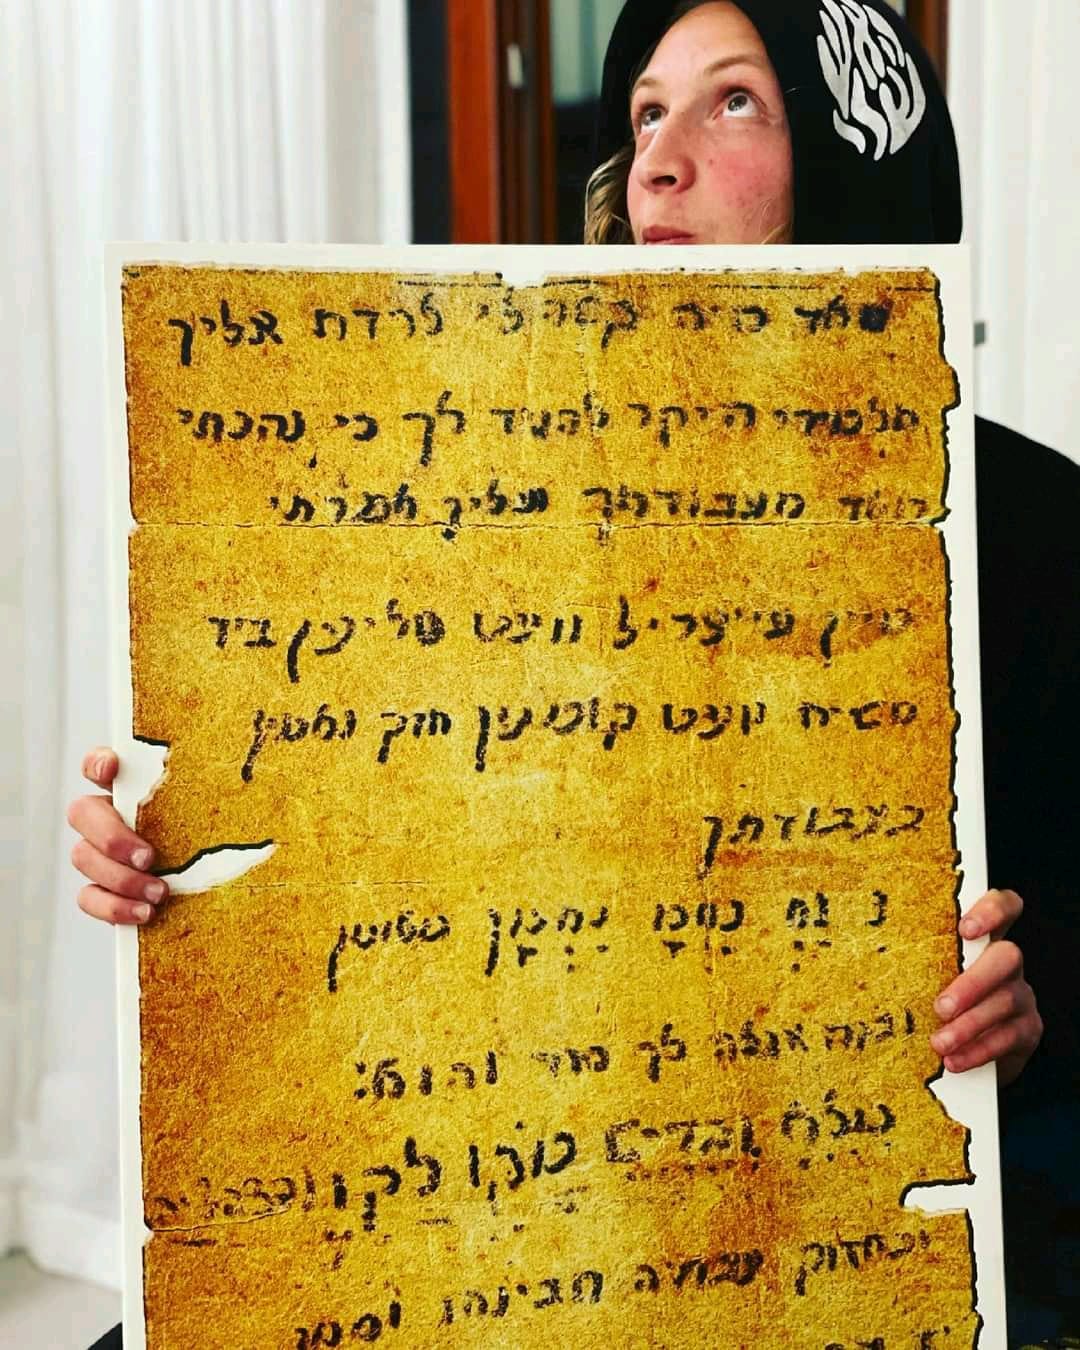 מאד היה קשה לי לרדת אליך
תלמידי היקר להגיד לך כי נהנתי
מאד מעבודתך ועליך אמרתי
מיין פייעריל וועט טליען ביז
משיח וועט קומען חזק ואמץ
בעבודתך
נ נח נחמ נחמן מאומן
ובזה אגלה לך סוד והוא:
מלא וגדיש מקו לקו
ובחזוק עבודה תבינהו וסמן